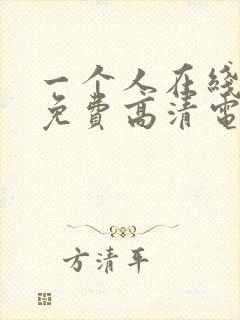 一个人在线
免費高清電
方清平